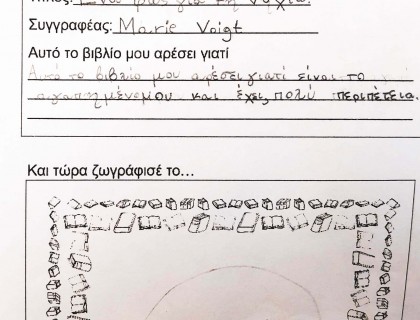 Τίτλος: Ένα φως για τη νύχτα.
Συγγραφέας: Marie Voigt
Αυτό το βιβλίο μου αρέσει γιατί
Αυτό το βιβλίο μου αρέσει γιατί είναι το
αγαπημένο μου και έχει πολύ περιπέτεια.
Και τώρα ζωγράφισέ το...